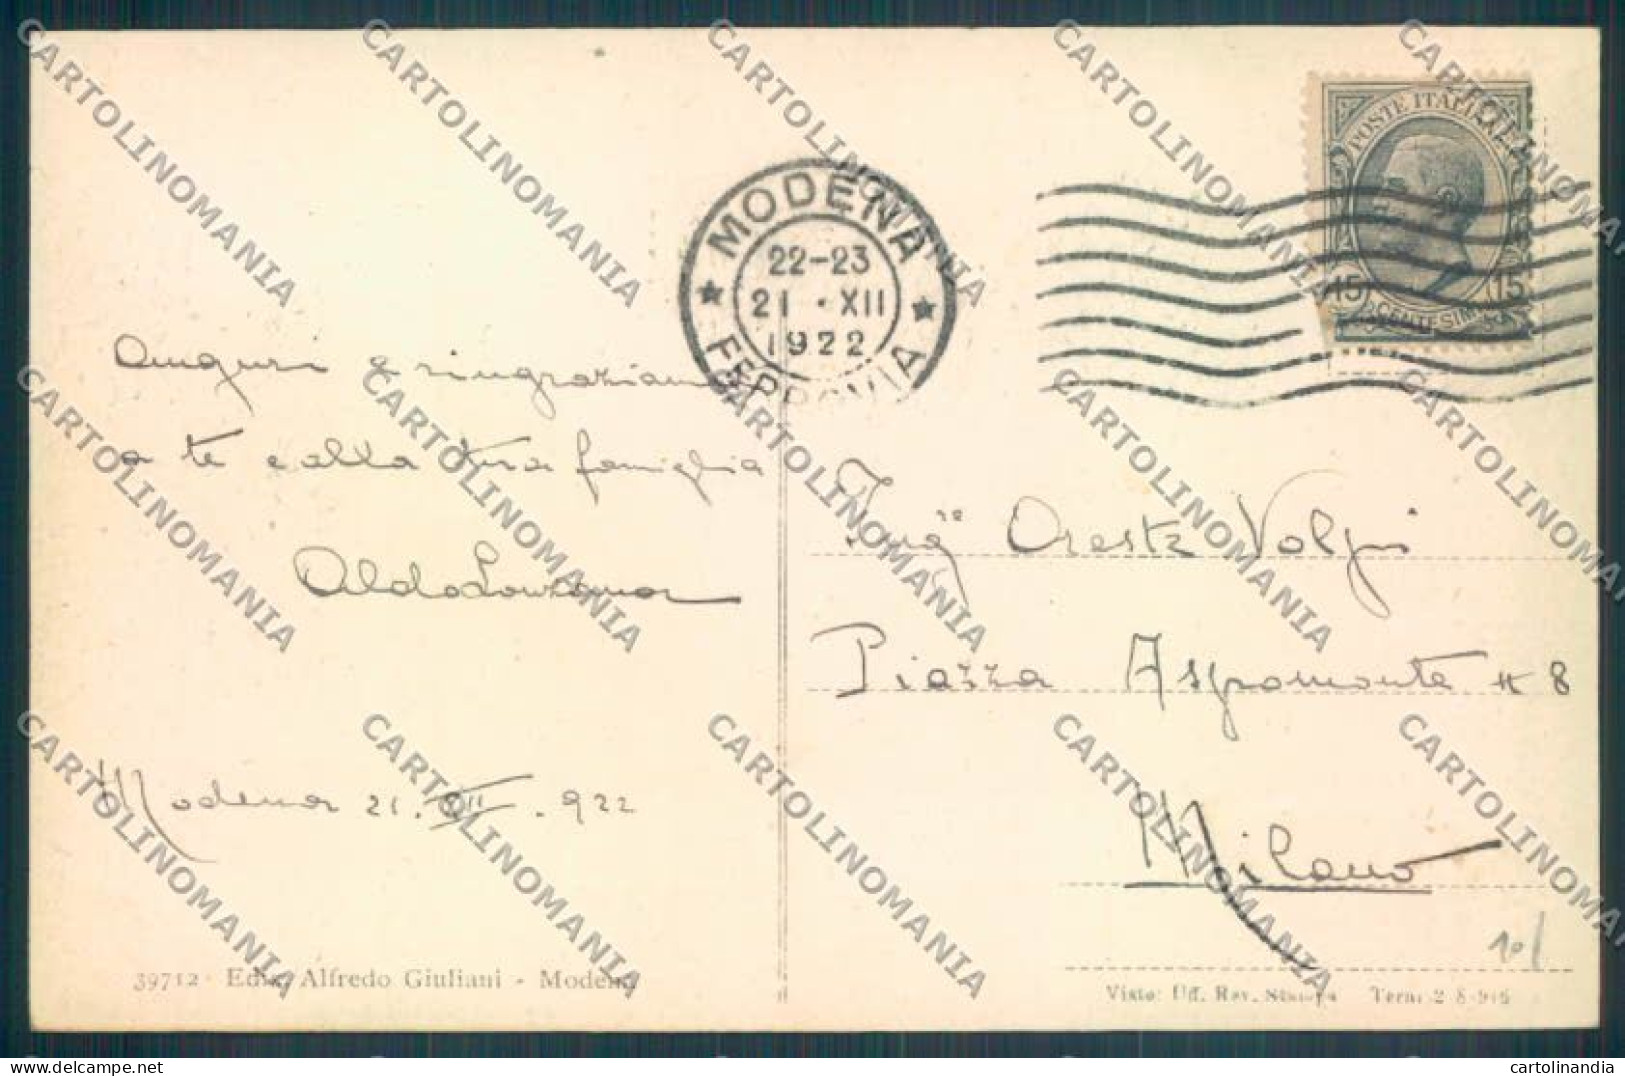 POSTE ITALIANE
15 15
CENTESIMI
MODENA
22-23
21 · XII
1922
FERROVIA
Auguri e ringraziam
a te e alla tua famiglia
Aldo
Modena 21. XII. 922
39712 · Ediz. Alfredo Giuliani - Modena
Ing.re Oreste Volpi
Piazza Aspromonte n 8
Milano
Visto: Uff. Rev. Stampa Terni 2-8-916
CARTOLINOMANIA
cartolinandia